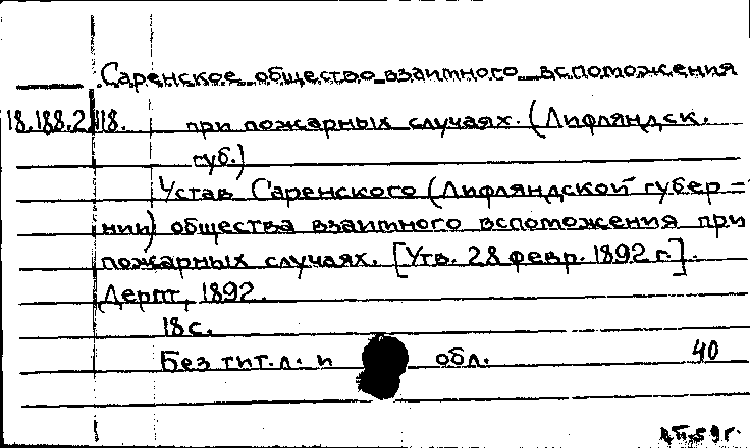 Саренское общество взаимного вспоможения
18.188.2.118. при пожарных случаях. (Лифляндск.
губ.)
Устав Саренского (Лифляндской губер=
нии) общества взаимного вспоможения при
пожарных случаях. [Утв. 28 февр. 1892 г.].
Дерпт, 1892.
18 с.
Без тит. л. и обл. 40